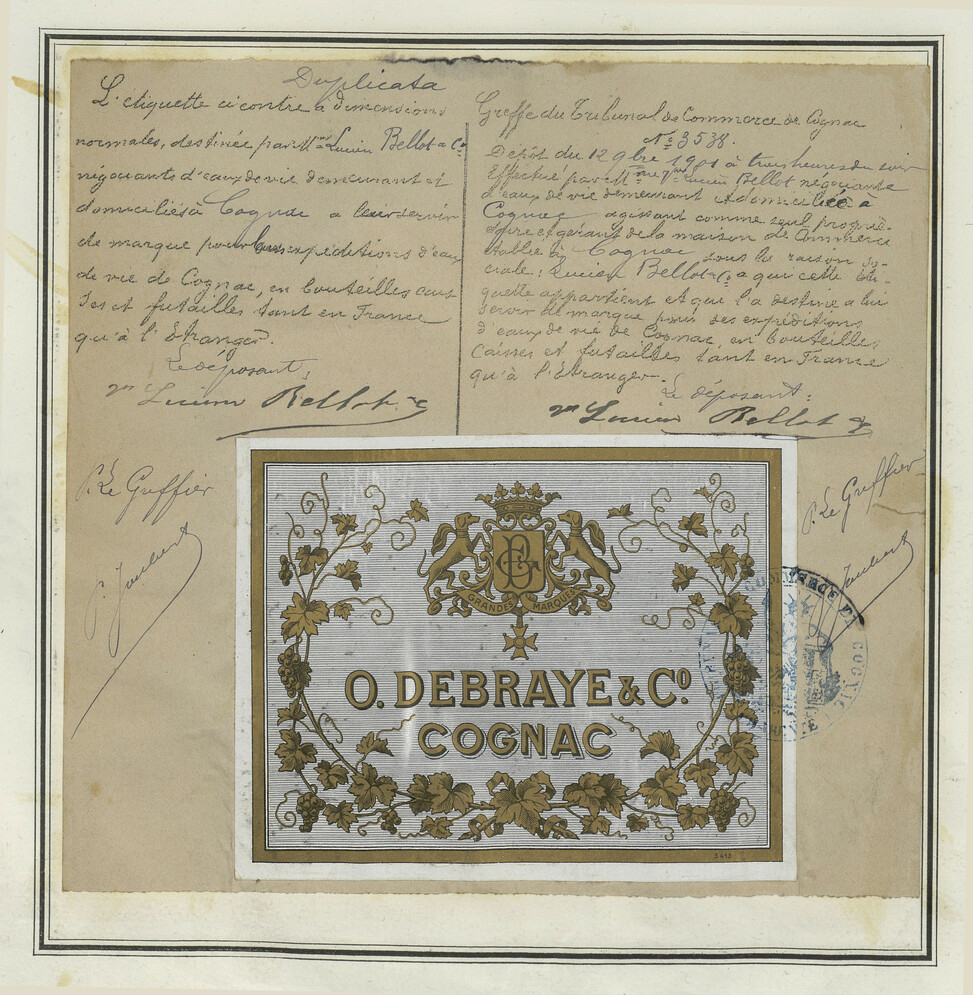 Duplicata
L'étiquette ci contre à dimensions
normales, destinée par Mme Lucien Bellot & Co
négociants d'eaux de vie demeurant et
domiciliés à Cognac a leur servir
de marque pour leurs expéditions d'eaux
de vie de Cognac, en bouteilles cais
ses et futailles tant en France
qu'à l'Etranger.
Le déposant,
Vve Lucien Bellot & C
P. Le Greffier
P. Joubert
Greffe du Tribunal de Commerce de Cognac
No 3538.
Dépôt du 12 9bre 1901 à trois heures du soir
Effectué par Mme Vve Lucien Bellot négociante
d'eaux de vie demeurant et domiciliée à
Cognac agissant comme seul proprié-
taire et gérant de la maison de Commerce
établie à Cognac sous la raison so-
ciale: Lucien Bellot & Co a qui cette éti-
quette appartient et que l'a destinée a lui
servir de marque pour des expéditions
d'eaux de vie de Cognac, en bouteilles
caisses et futailles tant en France
qu'à l'Etranger.
Le déposant:
Vve Lucien Bellot &
P. Le Greffier
Joubert
GRANDES MARQUES
O. DEBRAYE & Co.
COGNAC